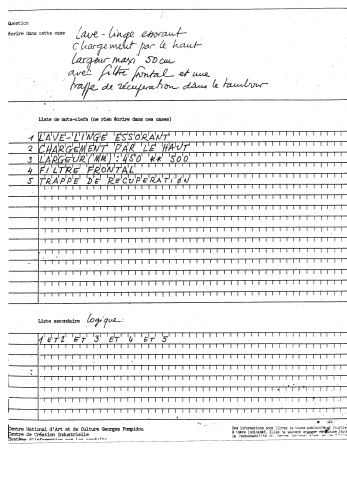 Question
écrire dans cette case
Lave-linge essorant
chargement par le haut
largeur maxi 50cm
avec filtre frontal et une
trappe de récupération dans le tambour
Liste de mots-clefs (ne rien écrire dans ces cases)
1 LAVE-LINGE ESSORANT
2 CHARGEMENT PAR LE HAUT
3 LARGEUR(MM):450 ** 500
4 FILTRE FRONTAL
5 TRAPPE DE RECUPERATION
Liste secondaire logique:
1 ET 2 ET 3 ET 4 ET 5
Centre National d'Art et de Culture Georges Pompidou
Centre de Création Industrielle
Système d'information sur les produits
Ces informations sont livrées
à titre indicatif. Elles ne peuvent engager
la responsabilité du Centre National d'Art et de